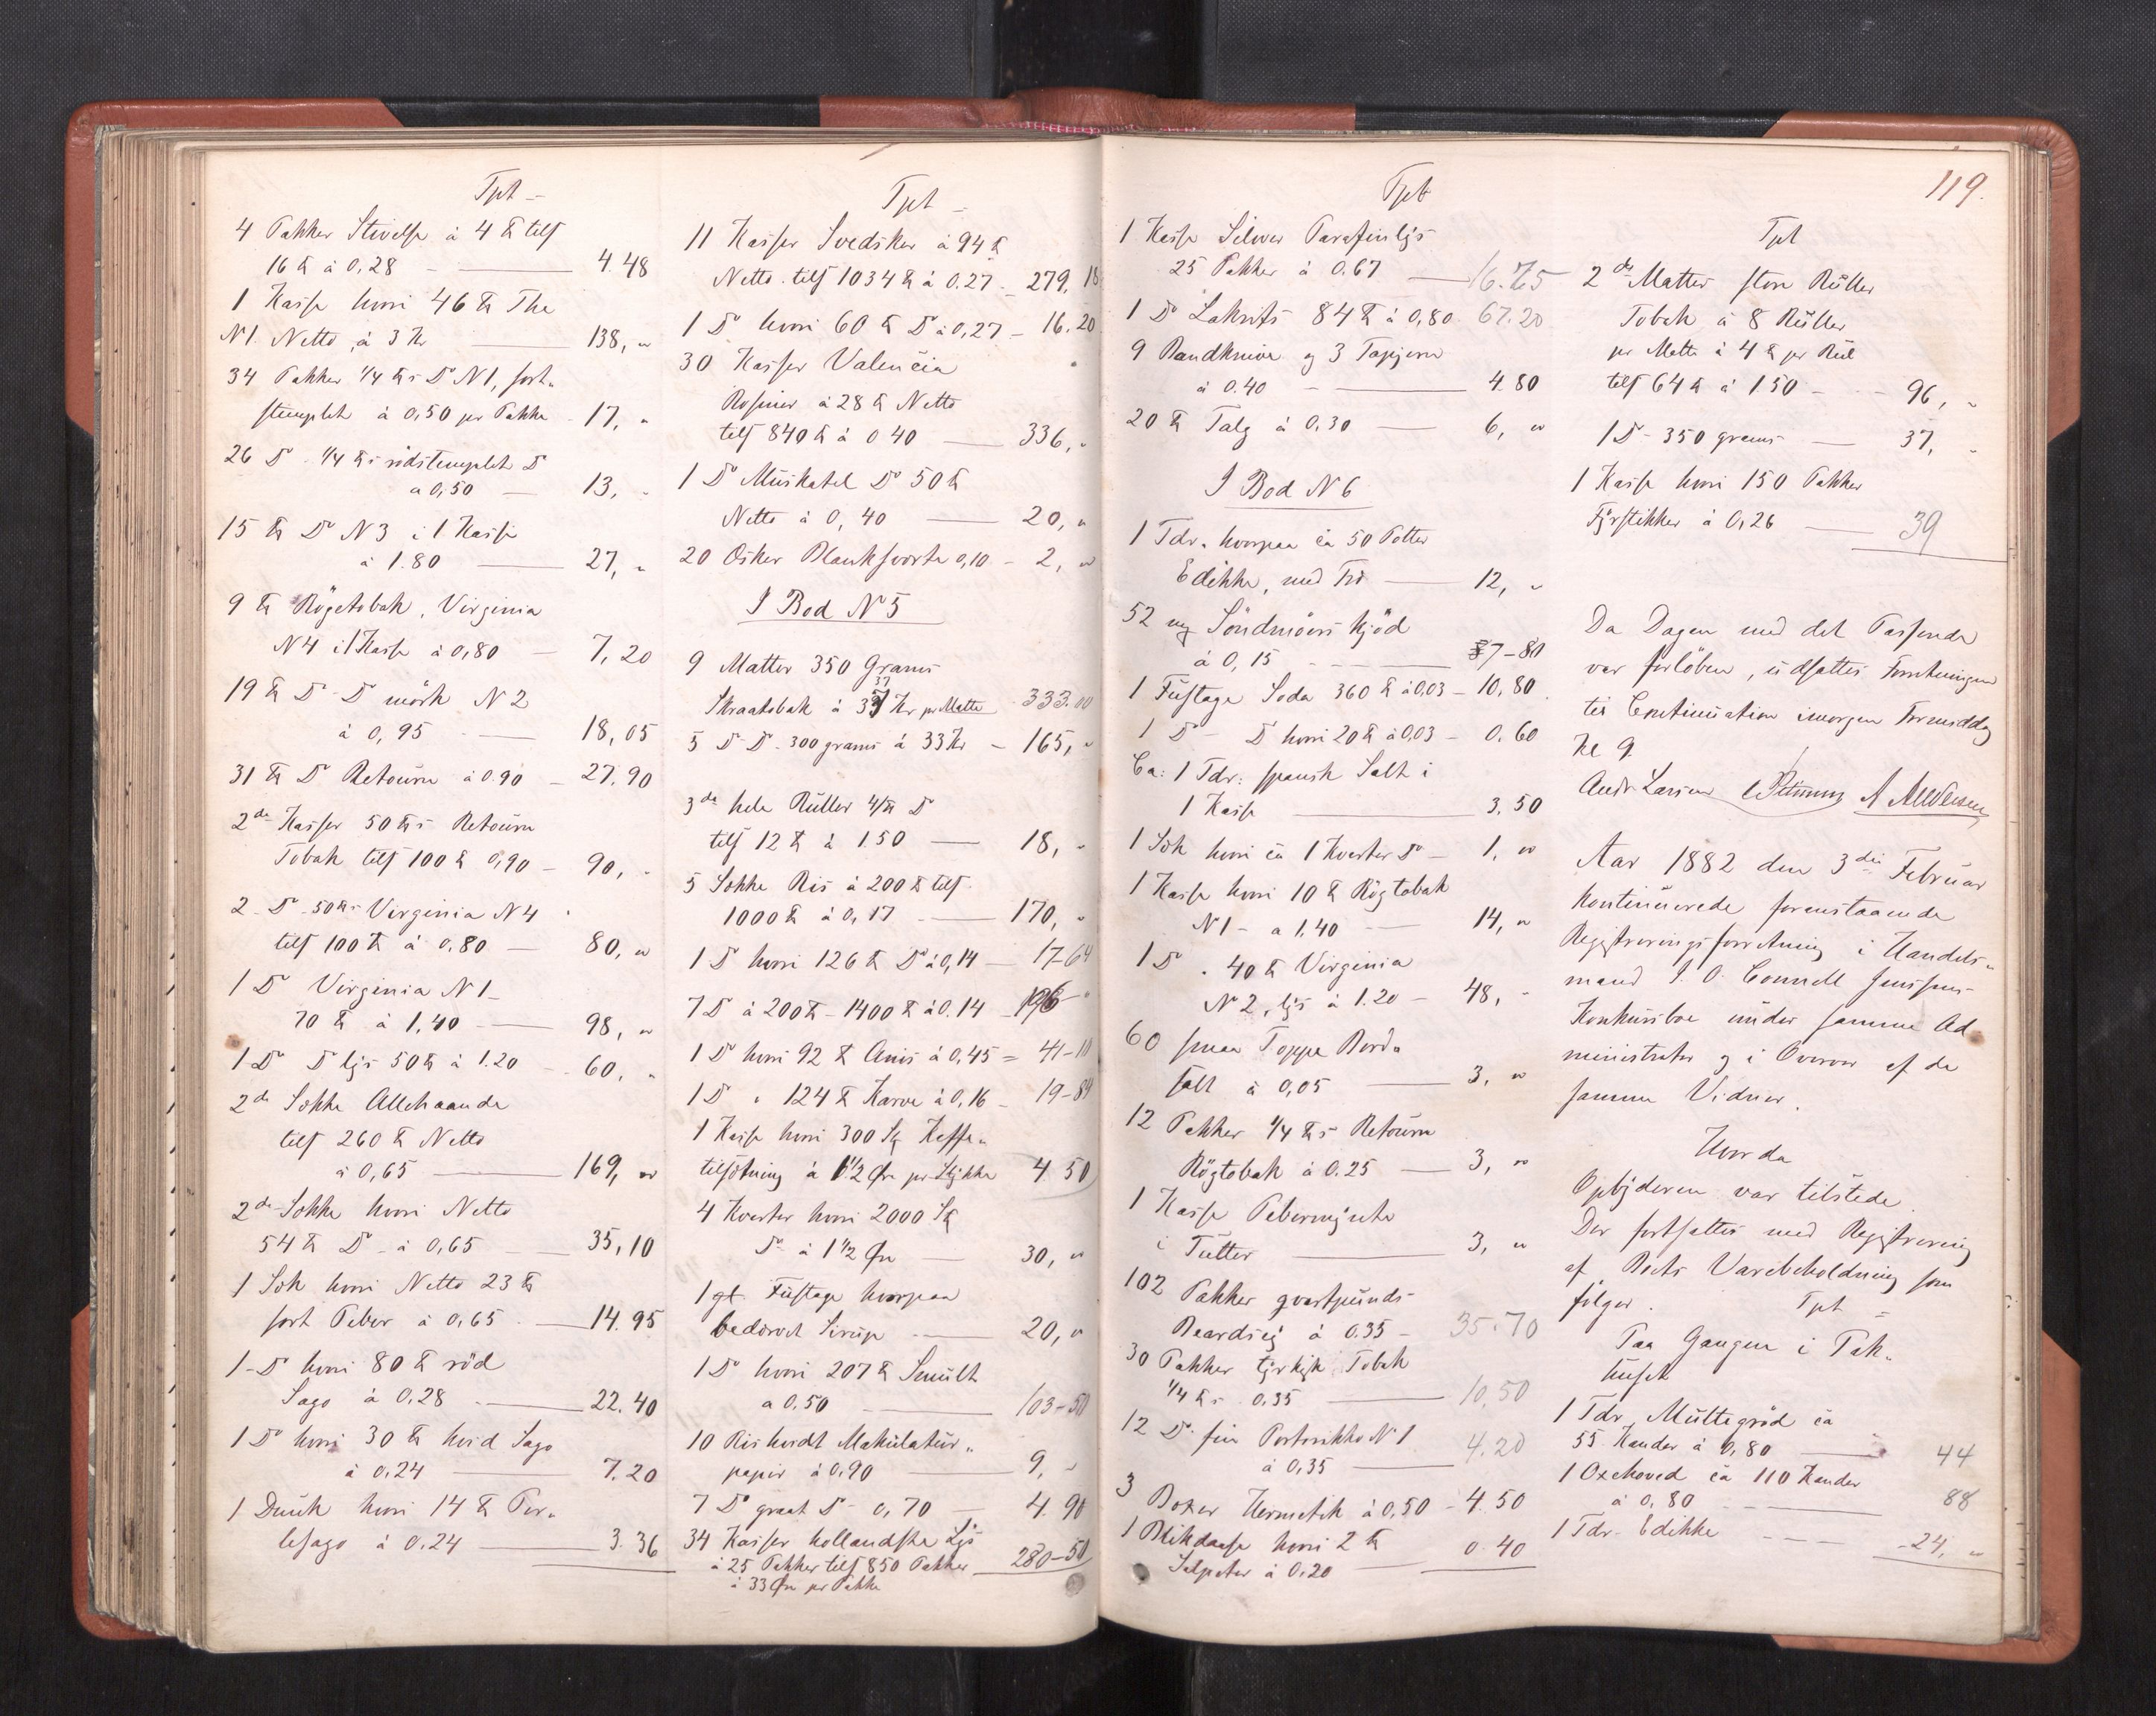 Tpt –
4 Pakker Stivelse à 4 ℔ tils
16 ℔ à 0,28 – 4.48
1 Kasse hvori 46 ℔ The
N 1. Netto, à 3 Kr 138, "
34 Pakker 1/4 ℔s Do N 1, sort-
stemplet à 0,50 pr Pakke - 17, "
26 Do 1/4 ℔s rödstemplet Do
a 0,50 — 13, "
15 ℔ Do N 3 i 1 Kasse
à 1.80 — 27, "
9 ℔ Rögetobak, Virginia
N 4 i 1 Kasse à 0,80 — 7,20
19 ℔ Do - Do mörk N 2
à 0,95 — 18,05
31 ℔ Do Retourn à 0.90 — 27.90
2de Kasser 50 ℔s Retourn
Tobak tils 100 ℔ 0,90 – 90, "
2 - Do - 50 ℔s Virginia N 4
tils 100 ℔ à 0.80 — 80, "
1 Do Virginia N 1 –
70 ℔ à 1,40 — 98, "
1 Do Do lys 50 ℔ à 1.20 – 60, "
2de Sække Allehaande
tils 260 ℔ Netto
à 0,65 — 169, "
2de Sække hvori Netto
54 ℔ Do - à 0,65 — 35,10
1 Sæk hvori Netto 23 ℔
sort Peber à 0,65 — 14.95
1 - Do hvori 80 ℔ röd
Sago à 0,28 — 22.40
1 Do hvori 30 ℔ hvid Sago
à 0.24 — 7.20
1 Dunk hvori 14 ℔ Per-
lesago à 0.24 — 3.36
Tpt –
11 Kasser Svedsker à 94 ℔
Netto tils 1034 ℔ à 0.27 – 279,18
1 Do hvori 60 ℔ Do à 0,27 – 16.20
30 Kasser Valencia
Rosiner à 28 ℔ Netto
tils 840 ℔ à 0 40 — 336, "
1 Do Muskatel Do 50 ℔
Netto à 0,40 — 20, "
20 Æsker Blanksværte 0,10 – 2, "
I Bod N 5
9 Matter 350 Grams
37
Skraatobak à 39 Kr pr Matte 333.00
5 Do Do - 300 grams à 33 Kr – 165, "
3de hele Ruller 4/℔ Do
tils 12 ℔ à 1.50 — 18, "
5 Sække Ris à 200 ℔ tils
1000 ℔ à 0,17 — 170, "
1 Do hvori 126 ℔ Do à 0,14 — 17-64
7 Do à 200 ℔ – 1400 ℔ à 0.14 – 196 - "
1 Do hvori 92 ℔ Anis à 0,45 = 41-40
1 Do " 124 ℔ Karve à 0,16 – 19-84
1 Kasse hvori 300 Stk Kaffe-
tilsætning à 1 1/2 Øre pr Stykke 4 50
4 Kvarter hvori 2000 Stk
Do à 1 1/2 Øre — 30, "
1 gl Fustage hvorpaa
bedærvet Sirup — 20, "
1 Do hvori 207 ℔ Smult
a 0.50 — 103-50
10 Ris hvidt Makulatur-
papir à 0,90 — 9, -
7 Do graat Do - 0,70 — 4.90
34 Kasser hollandske Lys
à 25 Pakker tils 850 Pakker
à 33 Øre pr Pakke 280-50
Tpt
1 Kasse Silver Parafinlys
25 Pakker à 0.67 — 16.75
1 Do Lakrits 84 ℔ à 0,80 67.20
9 Baandknive og 3 Tapjern
à 0.40 — 4.80
20 ℔ Talg à 0.30 — 6, "
I Bod N 6
1 Tdr. hvorpaa ca 50 Potter
Edikke, med Træ — 12, "
52 mg Söndmörs Kjöd
à 0,15 — 7-80
1 Fustage Soda 360 ℔ à 0,03 – 10,80
1 Do – Do hvori 20 ℔ à 0,03 – 0.60
Ca: 1 Tdr: spansk Salt i
1 Kasse — 3.50
1 Sæk hvori ca 1 Kvarter Do – 1, "
1 Kasse hvori 10 ℔ Rögtobak
N 1 – a 1,40 — 14, "
1 Do " 40 ℔ Virginia
N 2, lys à 1.20 – 48, "
60 smaa Toppe Bord-
salt à 0,05 — 3, "
12 Pakker 1/4 ℔s Retourn
Rögtobak à 0.25 — 3, "
1 Kasse Pebermynte
i Tutter — 3, "
102 Pakker qvartpunds-
Beardsej à 0.35 – 35.70
30 Pakker tyrkisk Tobak
1/4 ℔s 0,35 — 10,50
12 Do fin Portorikko N 1
à 0,35 — 4.20
3 Boxer Hermetik à 0,50 – 4.50
1 Blikdaase hvori 2 ℔
Salpeter à 0,20 — 0.40
119.
Tpt
2de Matter store Ruller
Tobak à 8 Ruller
pr Matte à 4 ℔ pr Rul
tils 64 ℔ à 1 50 – 96, "
1 Do - 350 grams — 37, "
1 Kasse hvori 150 Pakker
Fyrstikker à 0,26 — 39
Da Dagen med det Passerede
var forlöben, udsattes Forretningen
til Continuation imorgen Formiddag
Kl 9.
Andr Larsen
Aar 1882 den 3die Februar
Kontinuerede foranstaaende
Registreringsforretning i Handels-
mand J. O. Connell Jenssens
Konkursbo under samme Ad-
ministrator og i Overvær af de
samme Vidner.
Hvor da
Opbyderen var tilstede.
Der fortsattes med Registrering
af Boets Varebeholdning som
fölger. Tpt =
Paa Gangen i Pak-
huset
1 Tdr. Multegröd ca
55 Kander à 0,80 — 44
1 Oxehoved ca 110 Kander
à 0,80 — 88
1 Tdr. Edikke — 24, "